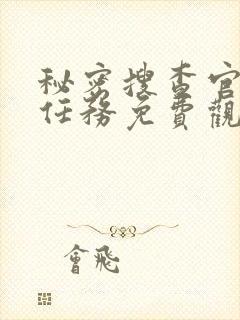 秘密搜查官
任務免費觀
會飛